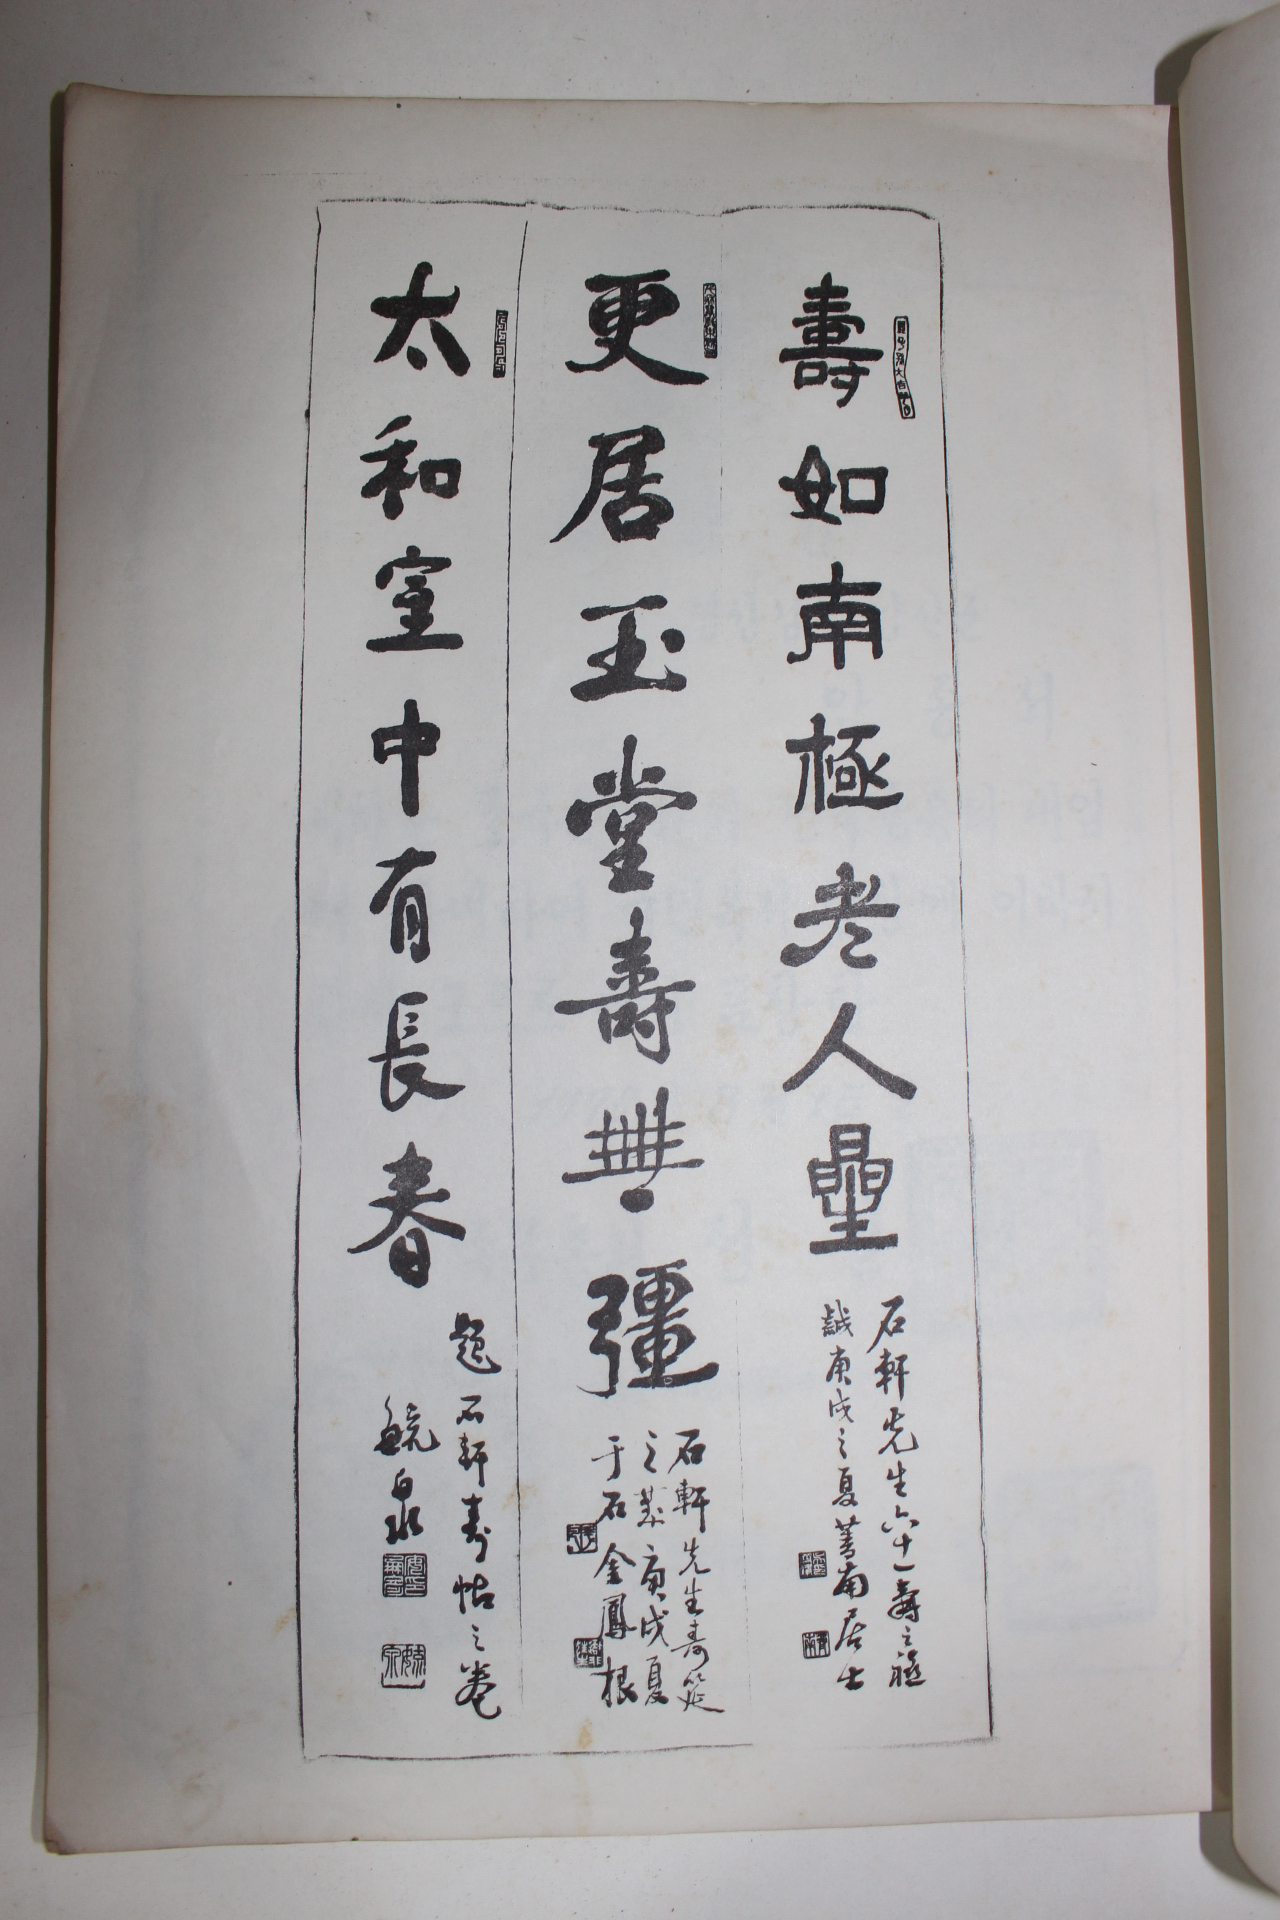 壽如南極老人曐
石軒先生六十一壽之筵
誠庚戌之夏菁南居士
更居玉堂壽無疆
石軒先生壽筵
之慕庚戌夏
于石金鳳根
太和室中有長春
題石軒壽帖之卷
毓泉